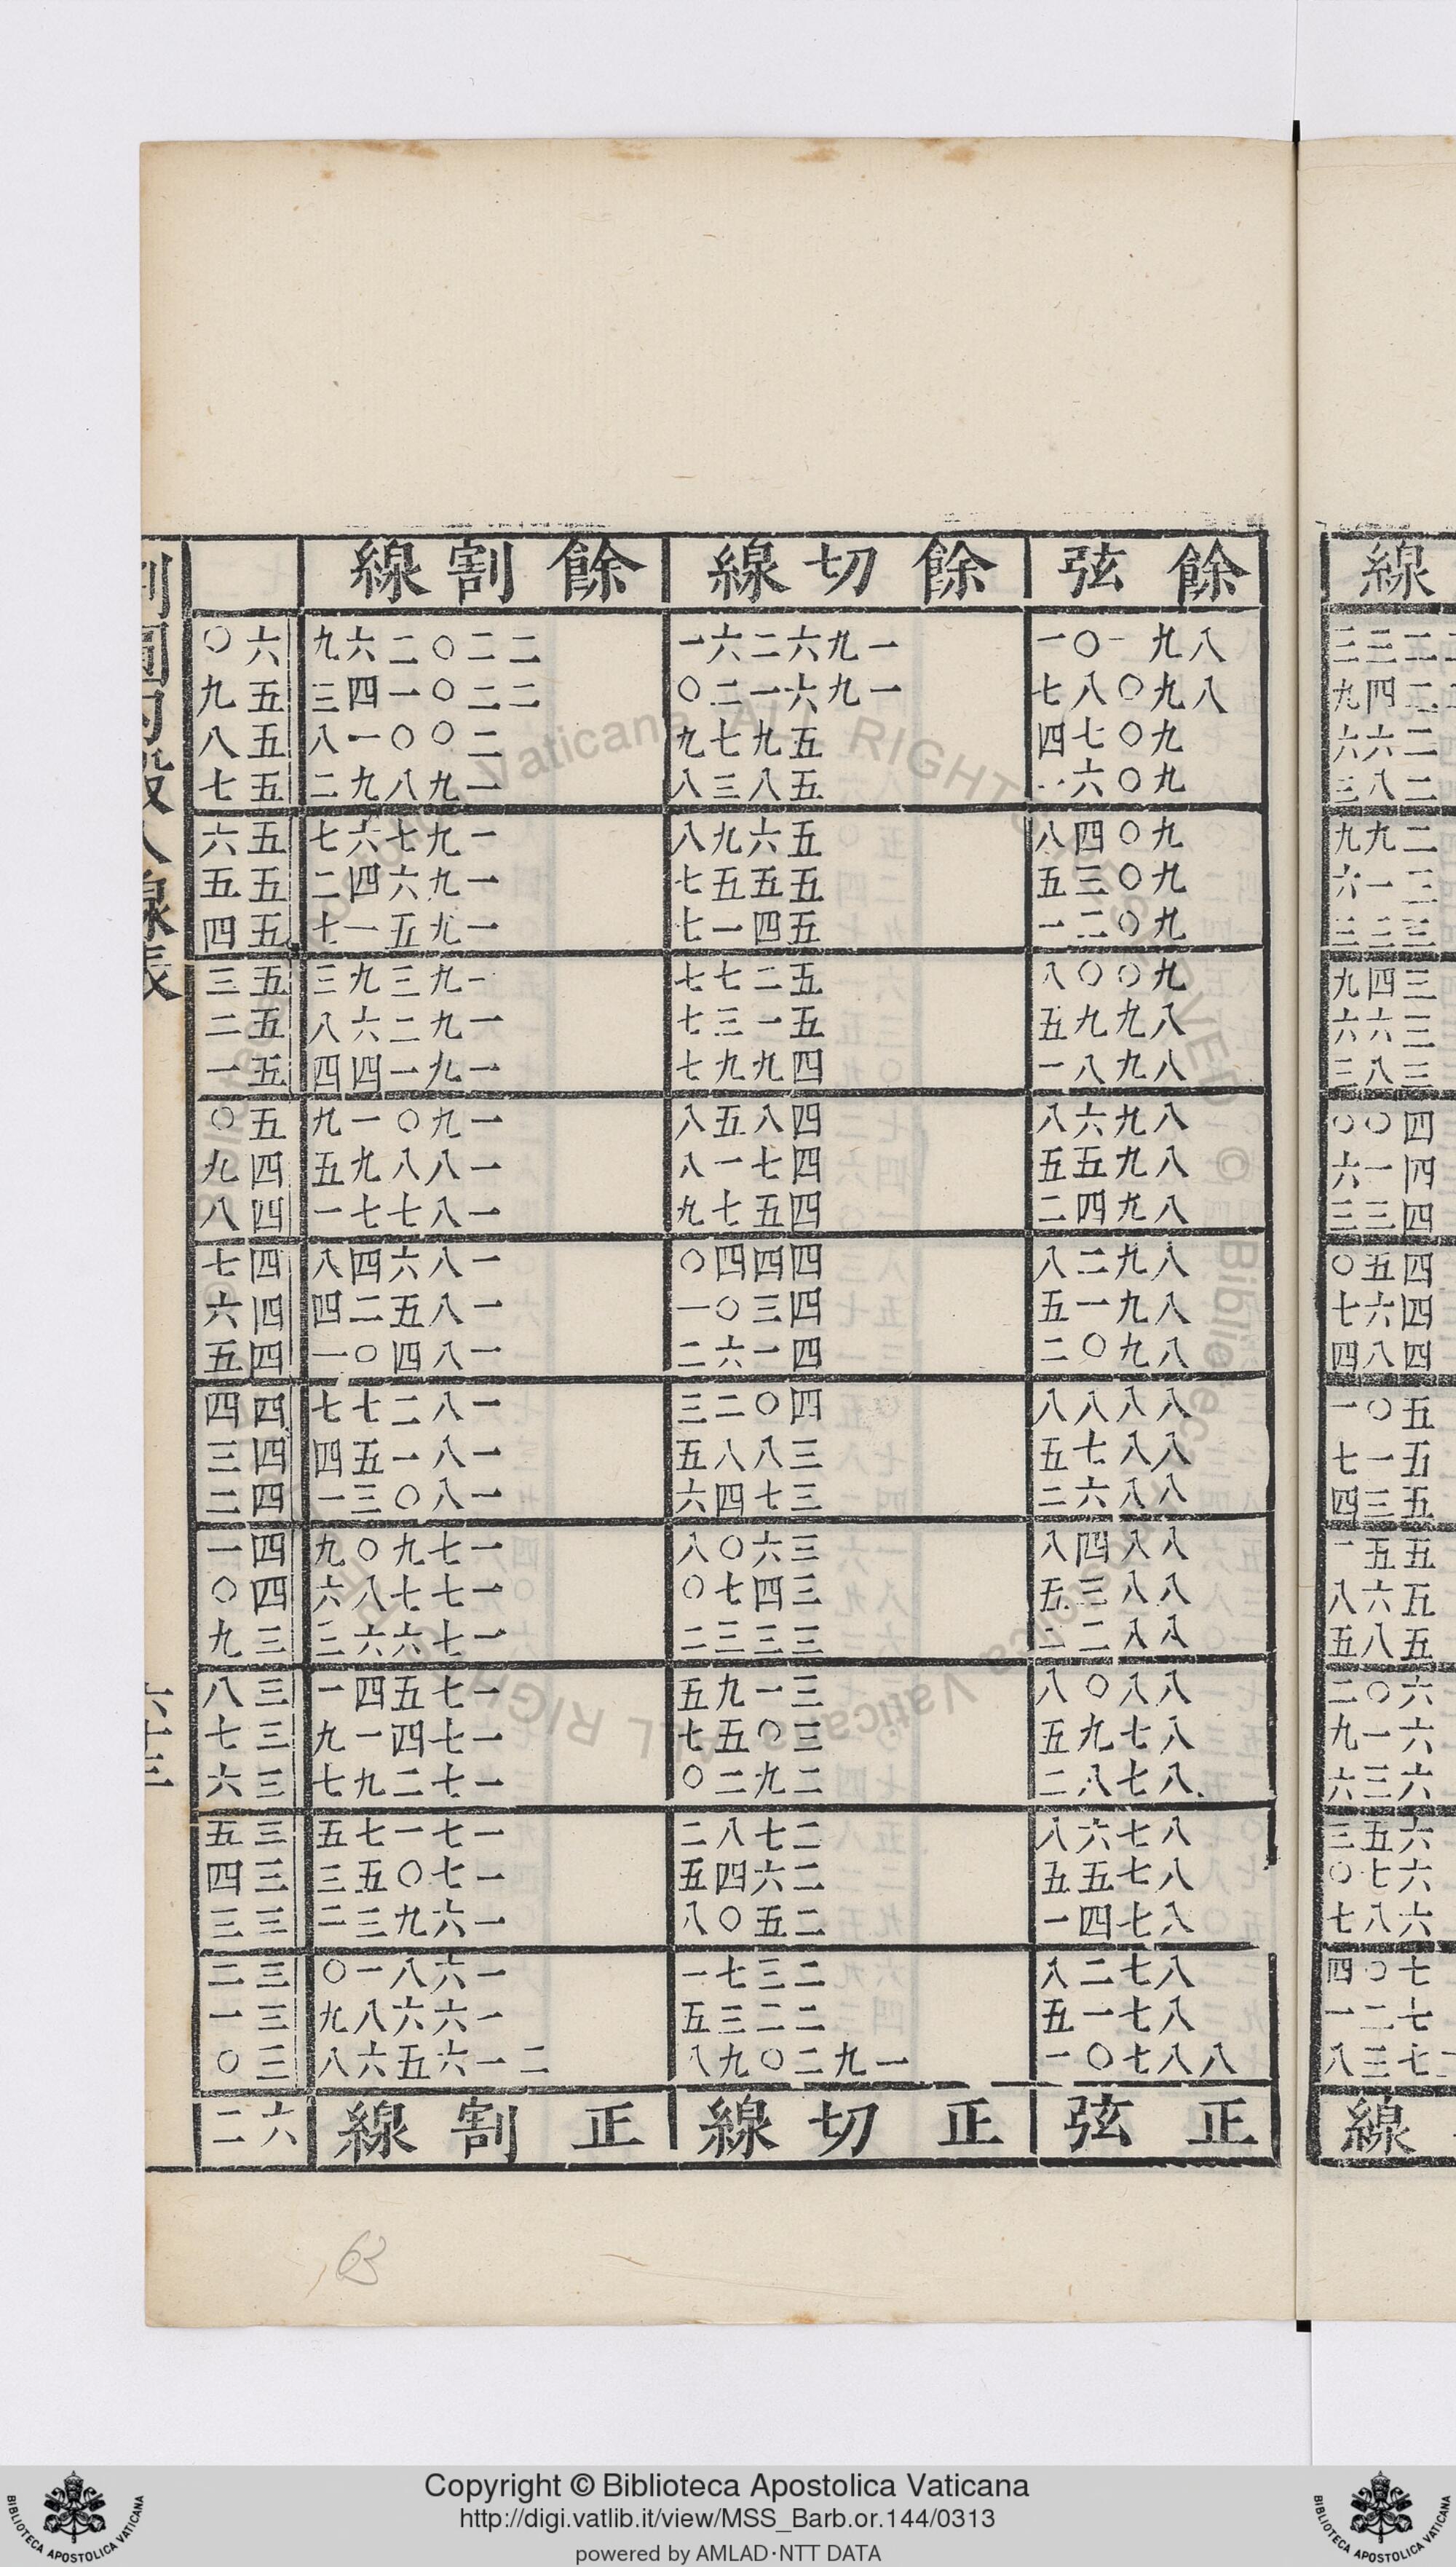 餘弦 餘切線 餘割線
八九一〇一 一九六二六一 二二〇二六九 六〇
八九〇八七 一九六一二〇 二二〇一四三 五九
九〇七四 五九七九 二〇〇一八 五八
九〇六一 五八三八 一九八九二 五七
九〇四八 五六九八 一九七六七 五六
九〇三五 五五五七 一九六四二 五五
九〇二一 五四一七 一九五一七 五四
九〇〇八 五二七七 一九三九三 五三
八九九五 五一三七 一九二六八 五二
八九八一 四九九七 一九一四四 五一
八九六八 四八五八 一九〇一九 五〇
八九五五 四七一八 一八八九五 四九
八九四二 四五七九 一八七七一 四八
八九二八 四四四〇 一八六四八 四七
八九一五 四三〇一 一八五二四 四六
八九〇二 四一六二 一八四〇一 四五
八八八八 四〇二三 一八二七七 四四
八八七五 三八八五 一八一五四 四三
八八六二 三七四六 一八〇三一 四二
八八四八 三六〇八 一七九〇九 四一
八八三五 三四七〇 一七七八六 四〇
八八二二 三三三二 一七六六三 三九
八八〇八 三一九五 一七五四一 三八
八七九五 三〇五七 一七四一九 三七
八七八二 二九二〇 一七二九七 三六
八七六八 二七八二 一七一七五 三五
八七五五 二六四五 一七〇五三 三四
八七四一 二五〇八 一六九三二 三三
八七二八 二三七一 一六八一〇 三二
八七一五 二二三五 一六六八九 三一
八八七〇一 一九二〇九八 二一六五六八 三〇
正弦 正切線 正割線 六二
割圓勾股八線表
六十三
63
Copyright © Biblioteca Apostolica Vaticana
http://digi.vatlib.it/view/MSS_Barb.or.144/0313
powered by AMLAD·NTT DATA
BIBLIOTECA APOSTOLICA VATICANA
BIBLIOTECA APOSTOLICA VATICANA